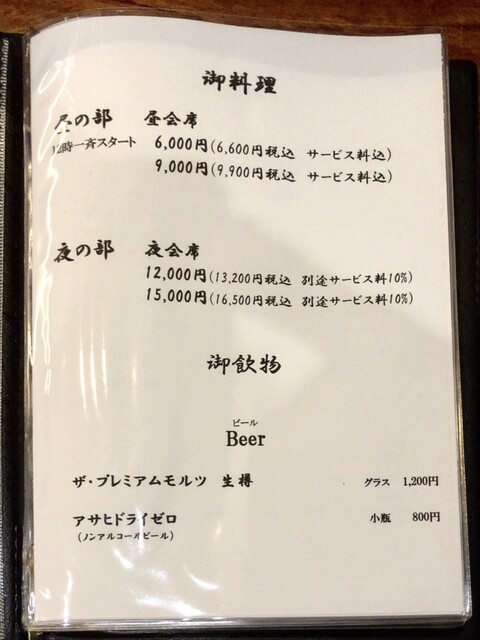 御料理
昼の部 昼会席
12時一斉スタート 6,000円(6,600円税込 サービス料込)
9,000円(9,900円税込 サービス料込)
夜の部 夜会席
12,000円(13,200円税込 別途サービス料10%)
15,000円(16,500円税込 別途サービス料10%)
御飲物
ビール
Beer
ザ・プレミアムモルツ 生樽 グラス 1,200円
アサヒドライゼロ 小瓶 800円
(ノンアルコールビール)